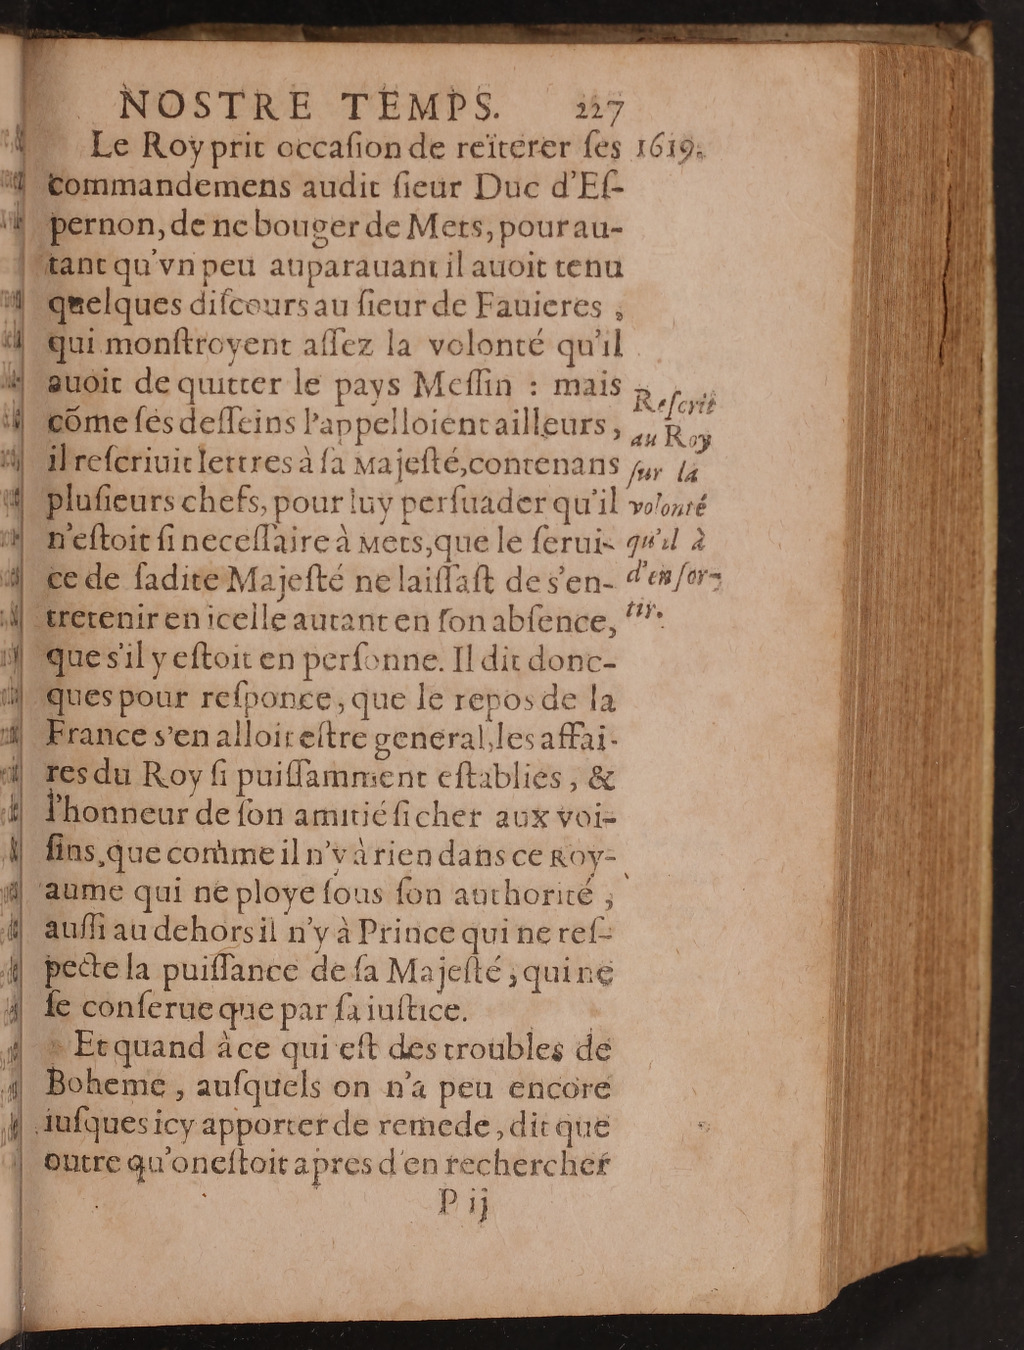 NOSTRE TEMPS. 227
Le Roy prit occaſion de reïterer ſes 1619.
commandemens audit ſieur Duc d'Eſ-
pernon, de ne bouger de Mets, pourau-
tant qu'vn peu auparauant il auoit tenu
quelques diſcours au ſieur de Fauieres,
qui monſtroyent aſſez la volonté qu'il
auoit de quitter le pays Meſſin : mais
cõme ſes deſſeins l'appelloient ailleurs,
il reſcriuit lettres à ſa Majeſté, contenans
pluſieurs chefs, pour luy perſuader qu'il
n'eſtoit ſi neceſſaire à Mets, que le ſerui-
ce de ſadite Majeſté ne laiſſaſt de s'en-
tretenir en icelle autant en ſon abſence,
que s'il y eſtoit en perſonne. Il dit donc-
ques pour reſponce, que le repos de la
France s'en alloit eſtre general, les affai-
res du Roy ſi puiſſamment eſtablies, &
l'honneur de ſon amitié ſi cher aux voi-
ſins, que comme il n'y à rien dans ce Roy-
aume qui ne ploye ſous ſon authorité ;
auſſi au dehors il n'y à Prince qui ne reſ-
pecte la puiſſance de ſa Majeſté ; qui ne
ſe conſerue que par ſa iuſtice.
Et quand à ce qui eſt des troubles de
Boheme, auſquels on n'a peu encore
iuſques icy apporter de remede, dit que
outre qu'on eſtoit apres d'en rechercher
P ij
Reſcrit
au Roy
ſur la
volonté
qu'il à
d'en ſor-
tir.